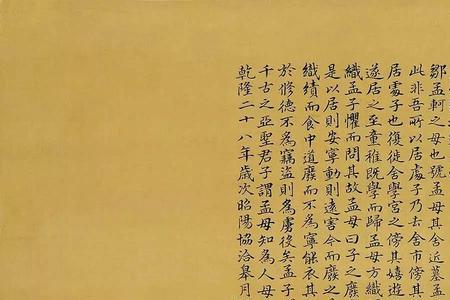 鄒孟軻之母也號孟母其舍近墓孟
此非吾所以居處子乃去舍市傍其
居處子也復徙舍學宮之傍其嬉遊
遂居之至童稚既學而歸孟母方織
織孟子懼而問其故孟母曰子之廢
是以居則安寧動則遠害今而廢之
織績而食中道廢而不為寧能衣其
於修德不為竊盜則為虜役矣孟子
千古之亞聖君子謂孟母知為人母
乾隆二十八年歲次昭陽協洽皋月